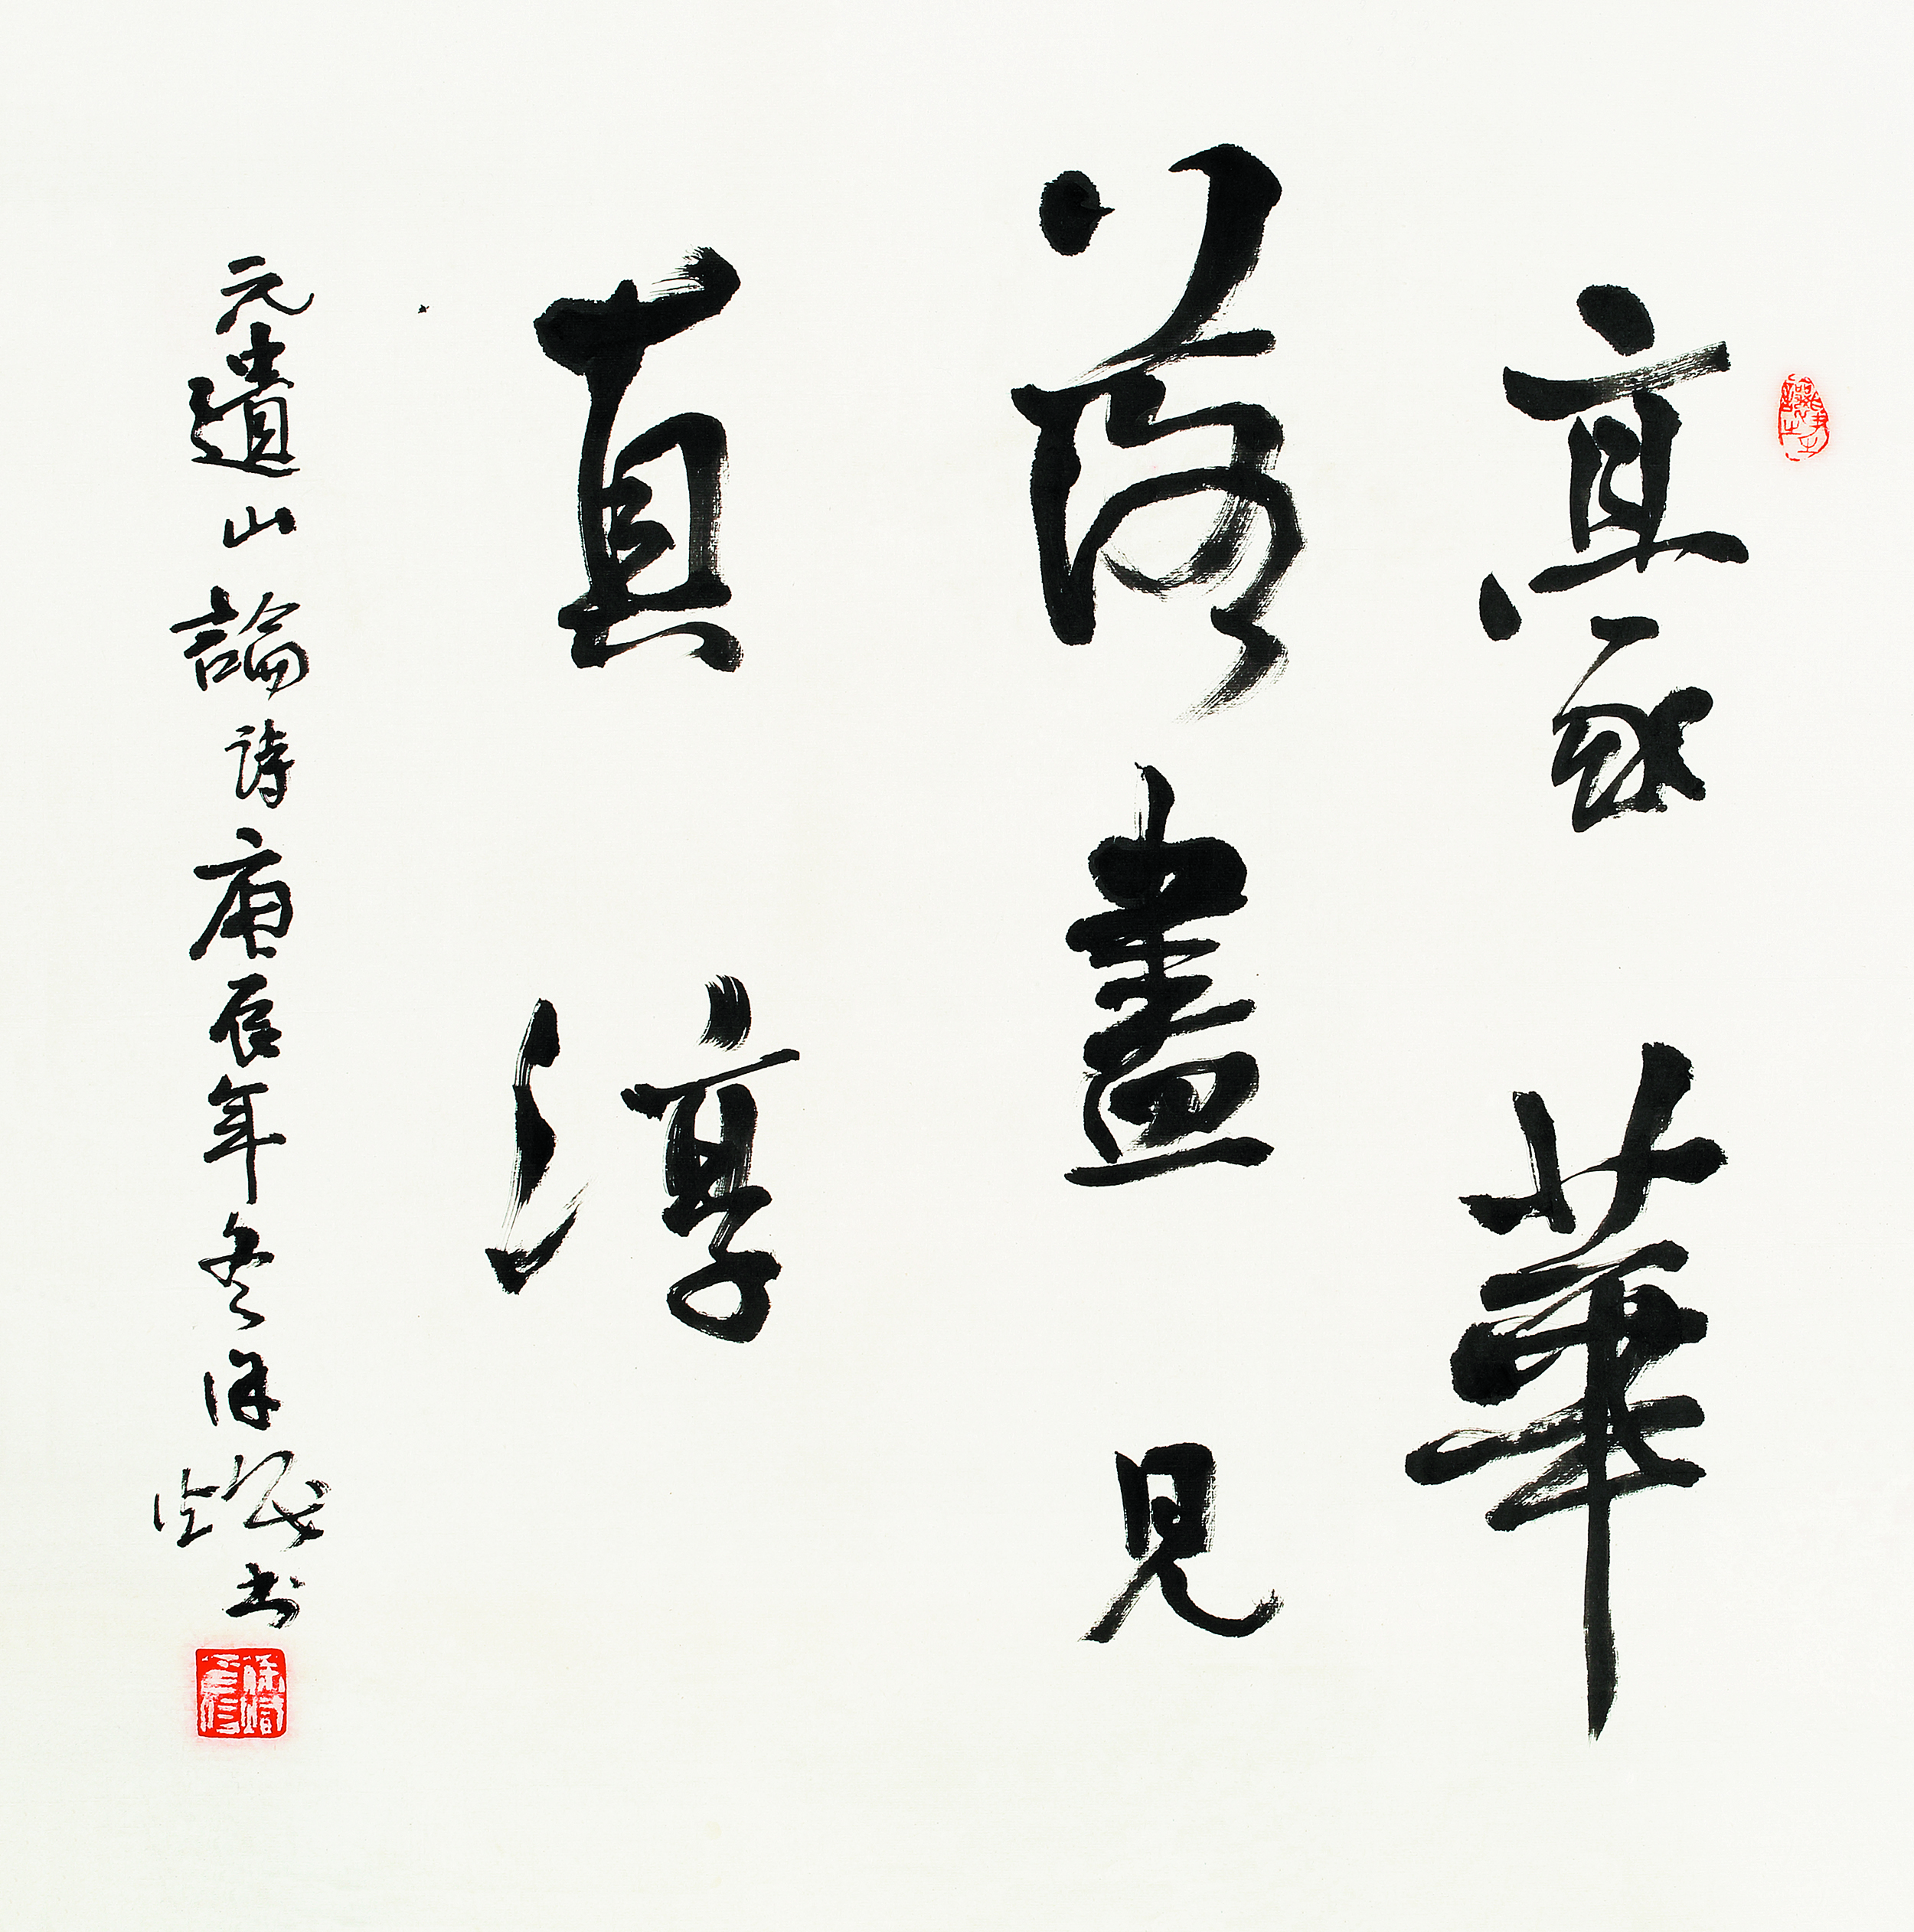 豪華
落盡見
真淳
元遺山論詩庚辰年冬徐書